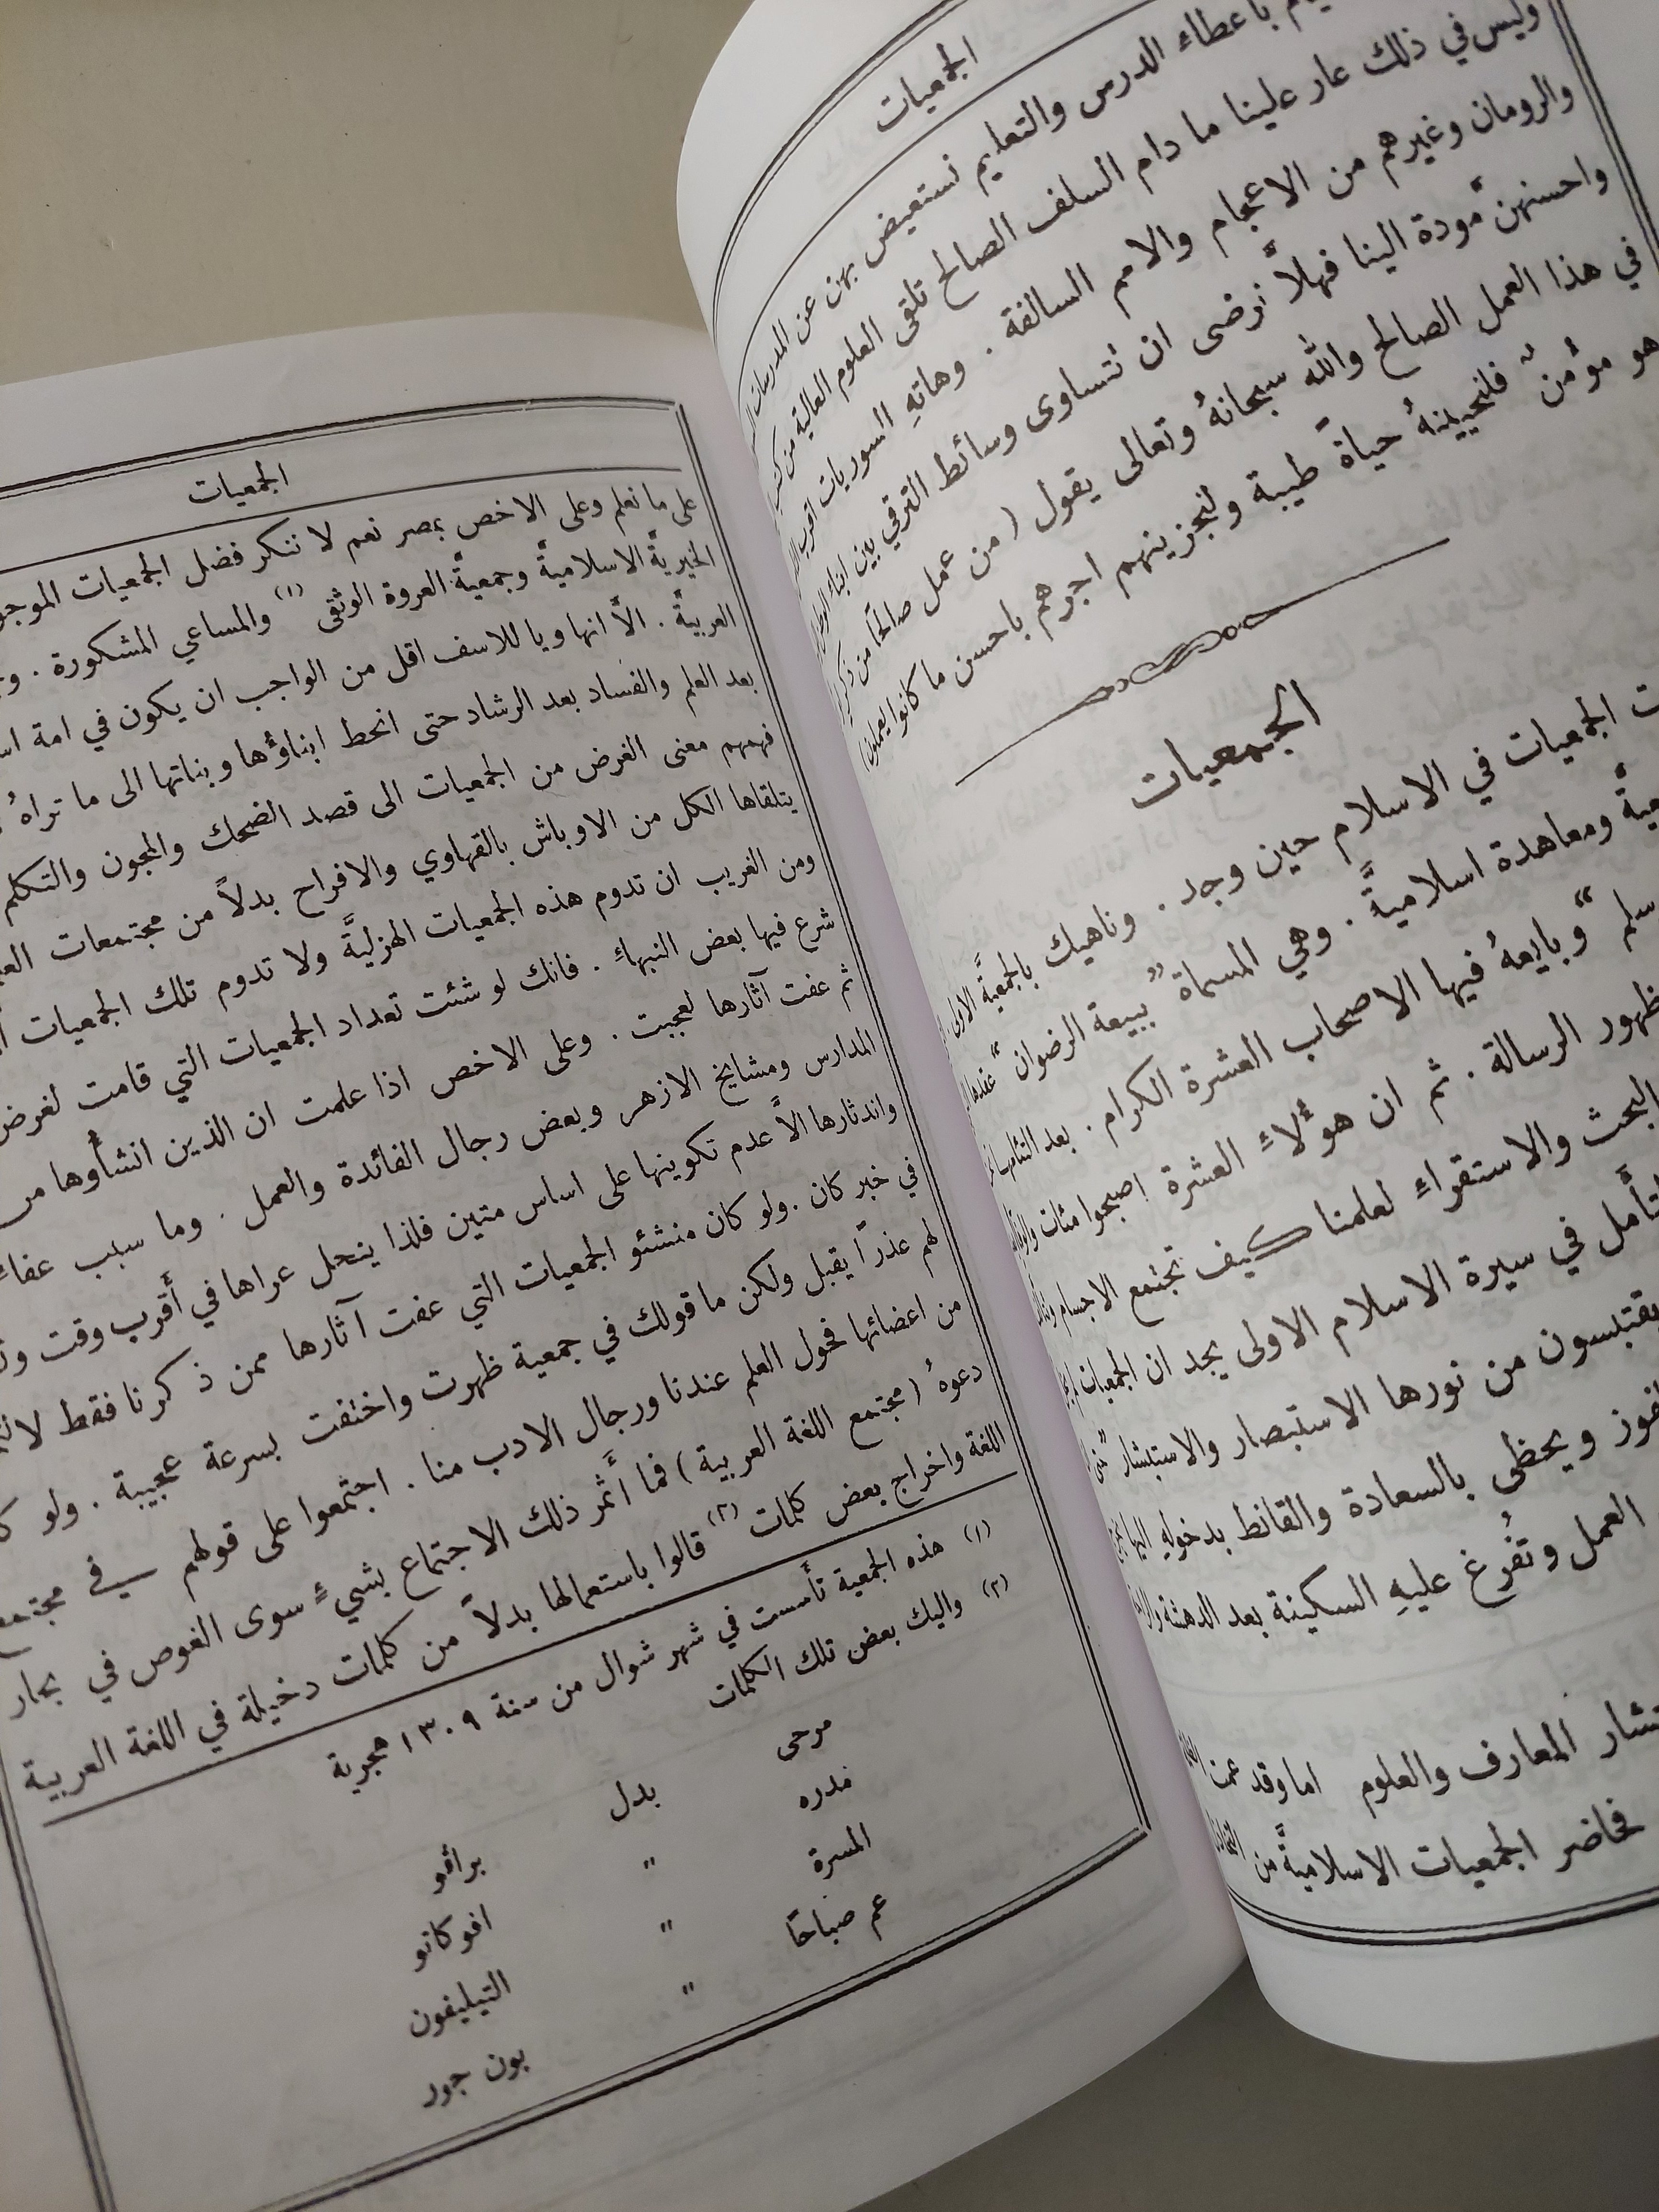 الجمعيات
باعطاء الدرس والتعليم نستعيض بهن عن المدرسات
وليس في ذلك عار علينا ما دام السلف الصالح تلقى العلوم العالية من كتب
والرومان وغيرهم من الاعجام والامم السالفة . وهاتهِ السوريات اقرب
واحسنهنَّ مودة الينا فهلاَّ نرضى ان نتساوى وسائط الترقي بين ابناء الوطن
في هذا العمل الصالح والله سبحانهُ وتعالى يقول ( من عمل صالحًا من ذكر
هو مؤمنٌ فلنحيينهُ حياةً طيبة ولنجزينهم اجرهم باحسن ما كانوا يعملون )
الجمعيات
ت الجمعيات في الاسلام حين وجد . وناهيك بالجمعيَّة الاولى
ومعاهدة اسلاميةَّ . وهي المسماة " ببيعة الرضوان " عقدها
سلم " وبايعهُ فيها الاصحاب العشرة الكرام . بعد التئامها
ظهور الرسالة . ثم ان هؤُلاءِ العشرة اصبحوا مئات والوفا
البحث والاستقراءِ لعلمنا كيف تجتمع الاجسام
تأَمل في سيرة الاسلام الاولى يجد ان الجمعيات
يقتبسون من نورها الاستبصار والاستبشار
فوز ويحظى بالسعادة والقانط بدخولهِ اليها
العمل وتُفرغ عليهِ السكينة بعد الدهشة
تشار المعارف والعلوم اما وقد عمت
فحاضر الجمعيات الاسلاميةَّ من
الجمعيات
على ما نعلم وعلى الاخص بمصر نعم لا ننكر فضل الجمعيات
الخيريةَّ الاسلاميةَّ وجمعيةَّ العروة الوثقى (١) والمساعي المشكورة .
العربيةَّ . الاَّ انها ويا للاسف اقل من الواجب ان يكون في امة
بعد العلم والفساد بعد الرشاد حتى انحط ابناؤُها وبناتها الى ما تراهُ
فهمهم معنى الغرض من الجمعيات الى قصد الضحك والمجون والتكلم
يتلقاها الكل من الاوباش بالقهاوي والافراح بدلاً من مجتمعات
ومن الغريب ان تدوم هذه الجمعيات الهزليةَّ ولا تدوم تلك الجمعيات
شرع فيها بعض النبهاءِ . فانك لو شئت تعداد الجمعيات التي قامت لغرض
ثم عفت آثارها لعجبت . وعلى الاخص اذا علمت ان الذين انشأُوها من
المدارس ومشايخ الازهر وبعض رجال الفائدة والعمل . وما سبب عفاء
واندثارها الاَّ عدم تكوينها على اساس متين فلذا ينحل عراها في أَقرب وقت
في خبر كان . ولو كان منشئو الجمعيات التي عفت آثارها ممن ذكرنا فقط
لهم عذراً يقبل ولكن ما قولك في جمعية ظهرت واختفت بسرعة عجيبة . ولو
من اعضائها فحول العلم عندنا ورجال الادب منا . اجتمعوا على قولهم في مجتمع
دعوهُ ( مجتمع اللغة العربية ) فما أَثمر ذلك الاجتماع بشيءٍ سوى الغوص في بحار
اللغة واخراج بعض كلمات (٢) قالوا باستعمالها بدلاً من كلمات دخيلة في اللغة العربية
(١) هذه الجمعية تأَسست في شهر شوال من سنة ١٣٠٩ هجرية
(٢) واليك بعض تلك الكلمات
مرحى بدل براڤو
مدره " افوكاتو
المسرة " التيليفون
عم صباحًا " بون جور